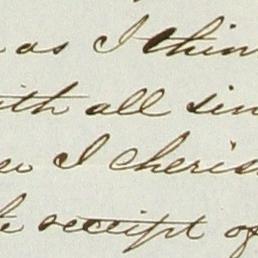 as I thin
ith all sin
I cheris
receipt of